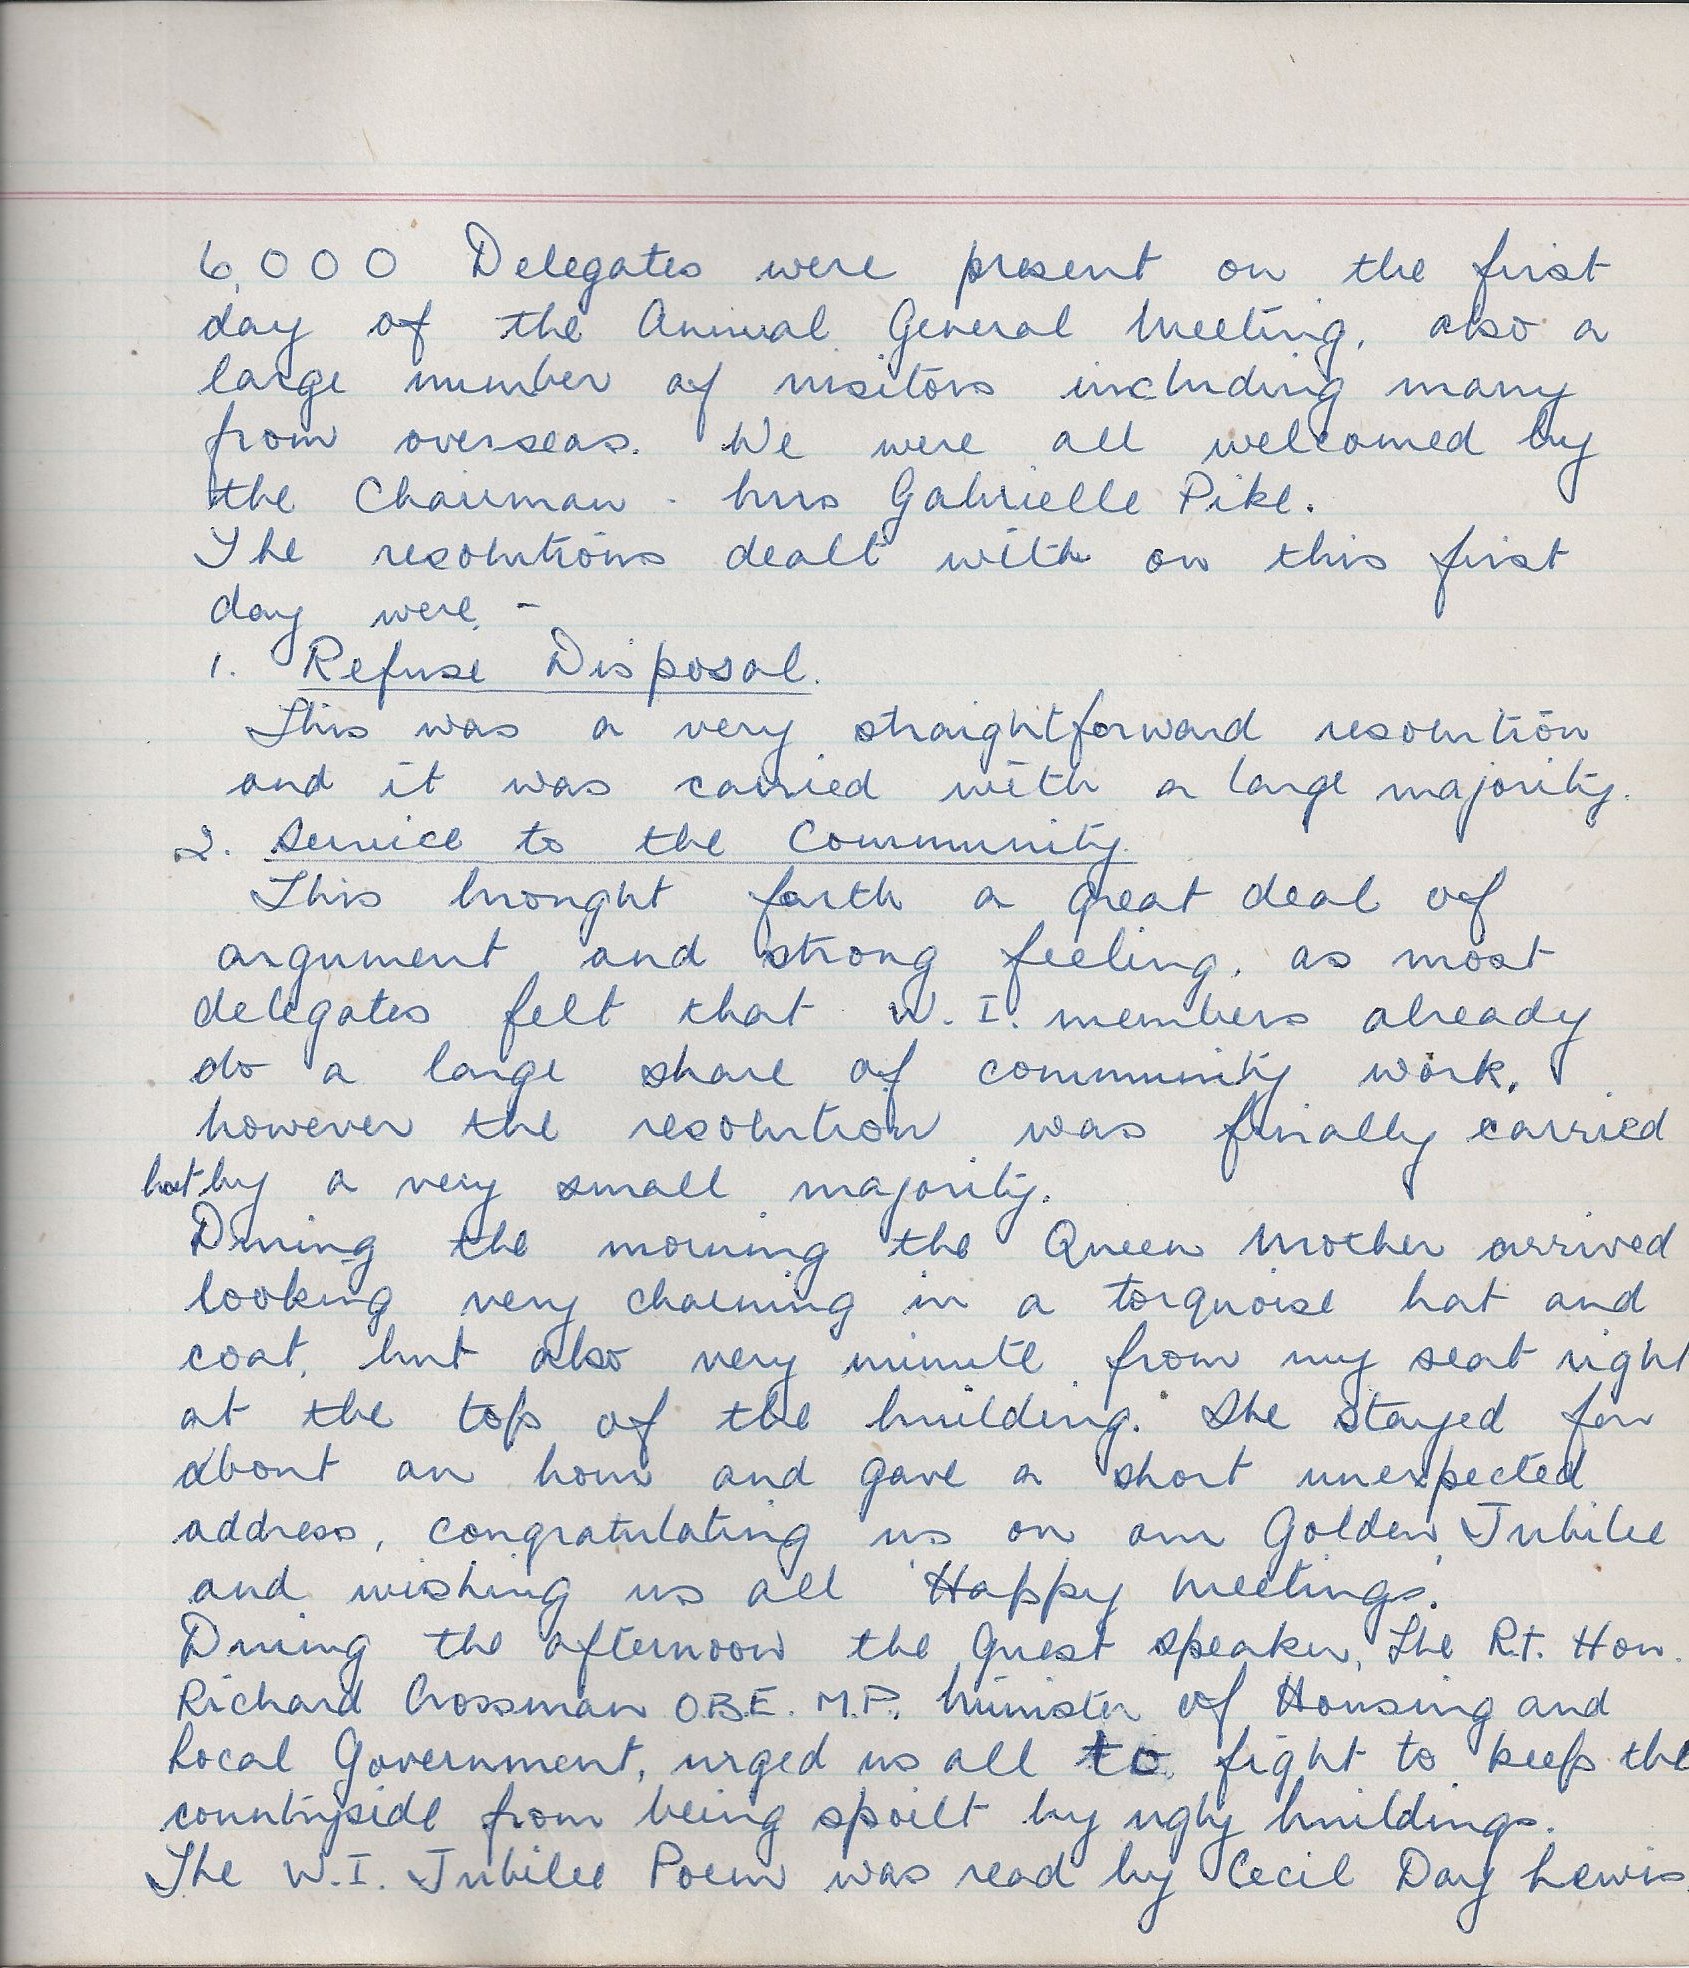 6,000 Delegates were present on the first
day of the Annual General Meeting, also a
large number of visitors including many
from overseas. We were all welcomed by
the Chairman - Mrs Gabrielle Pike.
The resolutions dealt with on this first
day were -
1. Refuse Disposal.
This was a very straightforward resolution
and it was carried with a large majority.
2. Service to the Community.
This brought forth a great deal of
argument and strong feeling, as most
delegates felt that W.I. members already
do a large share of community work,
however the resolution was finally carried
but by a very small majority.
During the morning the Queen Mother arrived
looking very charming in a torquoise hat and
coat, but also very minute from my seat right
at the top of the building. She stayed for
about an hour and gave a short unexpected
address, congratulating us on our Golden Jubilee
and wishing us all 'Happy Meetings'.
During the afternoon the Guest speaker, The Rt. Hon.
Richard Crossman O.B.E. M.P. Minister of Housing and
Local Government, urged us all to fight to keep the
countryside from being spoilt by ugly buildings.
The W.I. Jubilee Poem was read by Cecil Day Lewis.